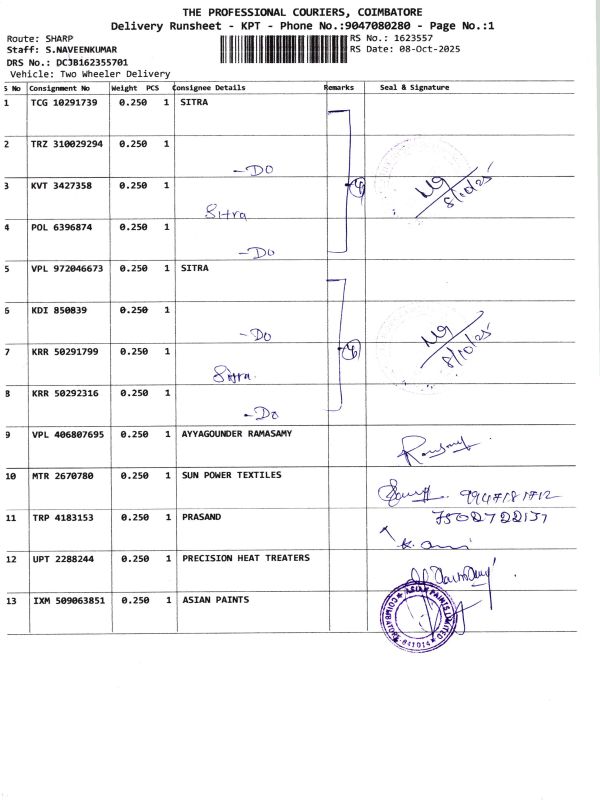 THE PROFESSIONAL COURIERS, COIMBATORE
Delivery Runsheet - KPT - Phone No.:9047080280 - Page No.:1
Route: SHARP
RS No.: 1623557
Staff: S.NAVEENKUMAR
RS Date: 08-Oct-2025
DRS No.: DCJB162355701
Vehicle: Two Wheeler Delivery
S No Consignment No Weight PCS Consignee Details Remarks Seal & Signature
1 TCG 10291739 0.250 1 SITRA
2 TRZ 310029294 0.250 1
-DO
3 KVT 3427358 0.250 1
Sitra
4 8/10/25
4 POL 6396874 0.250 1
-DO
5 VPL 972046673 0.250 1 SITRA
6 KDI 850839 0.250 1
-DO
7 KRR 50291799 0.250 1
Sitra
8/10/25
8 KRR 50292316 0.250 1
-DO
9 VPL 406807695 0.250 1 AYYAGOUNDER RAMASAMY
10 MTR 2670780 0.250 1 SUN POWER TEXTILES
9947181712
11 TRP 4183153 0.250 1 PRASAND
12 UPT 2288244 0.250 1 PRECISION HEAT TREATERS
13 IXM 509063851 0.250 1 ASIAN PAINTS
ASIAN PAINTS LIMITED
COIMBATORE-641014